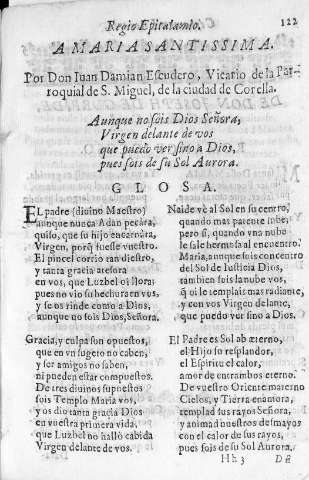 Regio Epitalamio. 122
A MARIA SANTISSIMA.
Por Don Iuan Damian Escudero, Vicario de la Par-
roquial de S. Miguel, de la ciudad de Corella.
Aunque no sois Dios Señora,
Virgen delante de vos
que puedo ver sino a Dios,
pues sois de su Sol Aurora.
GLOSA.
EL padre (divino Maestro)
aunque nunca Adan pecàra,
quiso, que su hijo encarnàra,
Virgen, porq̃ fuesse vuestro.
El pincel corriò tan diestro,
y tanta gracia atesora
en vos, que Luzbel oi llora;
pues no viò su hechura en vos,
y se os rinde como a Dios,
aunque no sois Dios, Señora.
Gracia, y culpa son opuestos,
que en vn sugeto no caben,
y ser amigos no saben,
ni pueden estar compuestos.
De tres divinos supuestos
sois Templo Maria vos,
y os diò tanta gracia Dios
en vuestra primera vida,
que Luzbel no hallò cabida
Virgen delante de vos.
Naide vè al Sol en su centro,
quando mas patente sube,
pero si, quando vna nube
le sale hermosa al encuentro
Maria, aunque sois concentro
del Sol de Iusticia Dios,
tambien sois la nube vos,
q̃ oi le templais mas radiante,
y con vos Virgen delante,
que puedo ver sino a Dios.
El Padre es Sol ab æterno,
el Hijo su resplandor,
el Espiritu el calor,
amor de entrambos eterno.
De vuestro Oriente materno
Cielos, y Tierra enamora,
templad sus rayos Señora,
y animad nuestros desmayos
con el calor de sus rayos,
pues sois de su Sol Aurora.
Hh 3